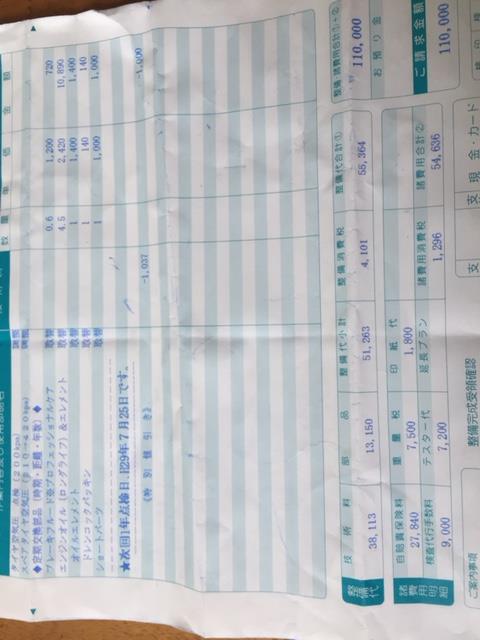 タイヤ空気圧 点検 (200kpa) 調整
スペアタイヤ空気圧 調整
◆定期交換部品(時期・距離・年数)◆
ブレーキフルード※プロフェッショナルケア 取替 0.6 1,200 720
エンジンオイル(ロングライフ)&エレメント 取替 4.5 2,420 10,890
オイルエレメント 取替 1 1,400 1,400
ドレンコックパッキン 取替 1 140 140
ショートパーツ 取替 1 1,000 1,000
★次回1年点検日、H29年7月25日です。
《特別値引き》 -1,037 -1,000
整備代
技術料 部品 整備代小計 整備消費税 整備代合計① 整備・諸費用合計(①+②)
38,113 13,150 51,263 4,101 55,364 110,000
諸費用明細
自賠責保険料 重量税 印紙代 お預り金
27,840 7,500 1,800
検査代行手数料 テスター代 延長プラン 諸費用消費税 諸費用合計② ご請求金額
9,000 7,200 1,296 54,636 110,000
ご案内事項 整備完成受領確認 支 支 現金・カード